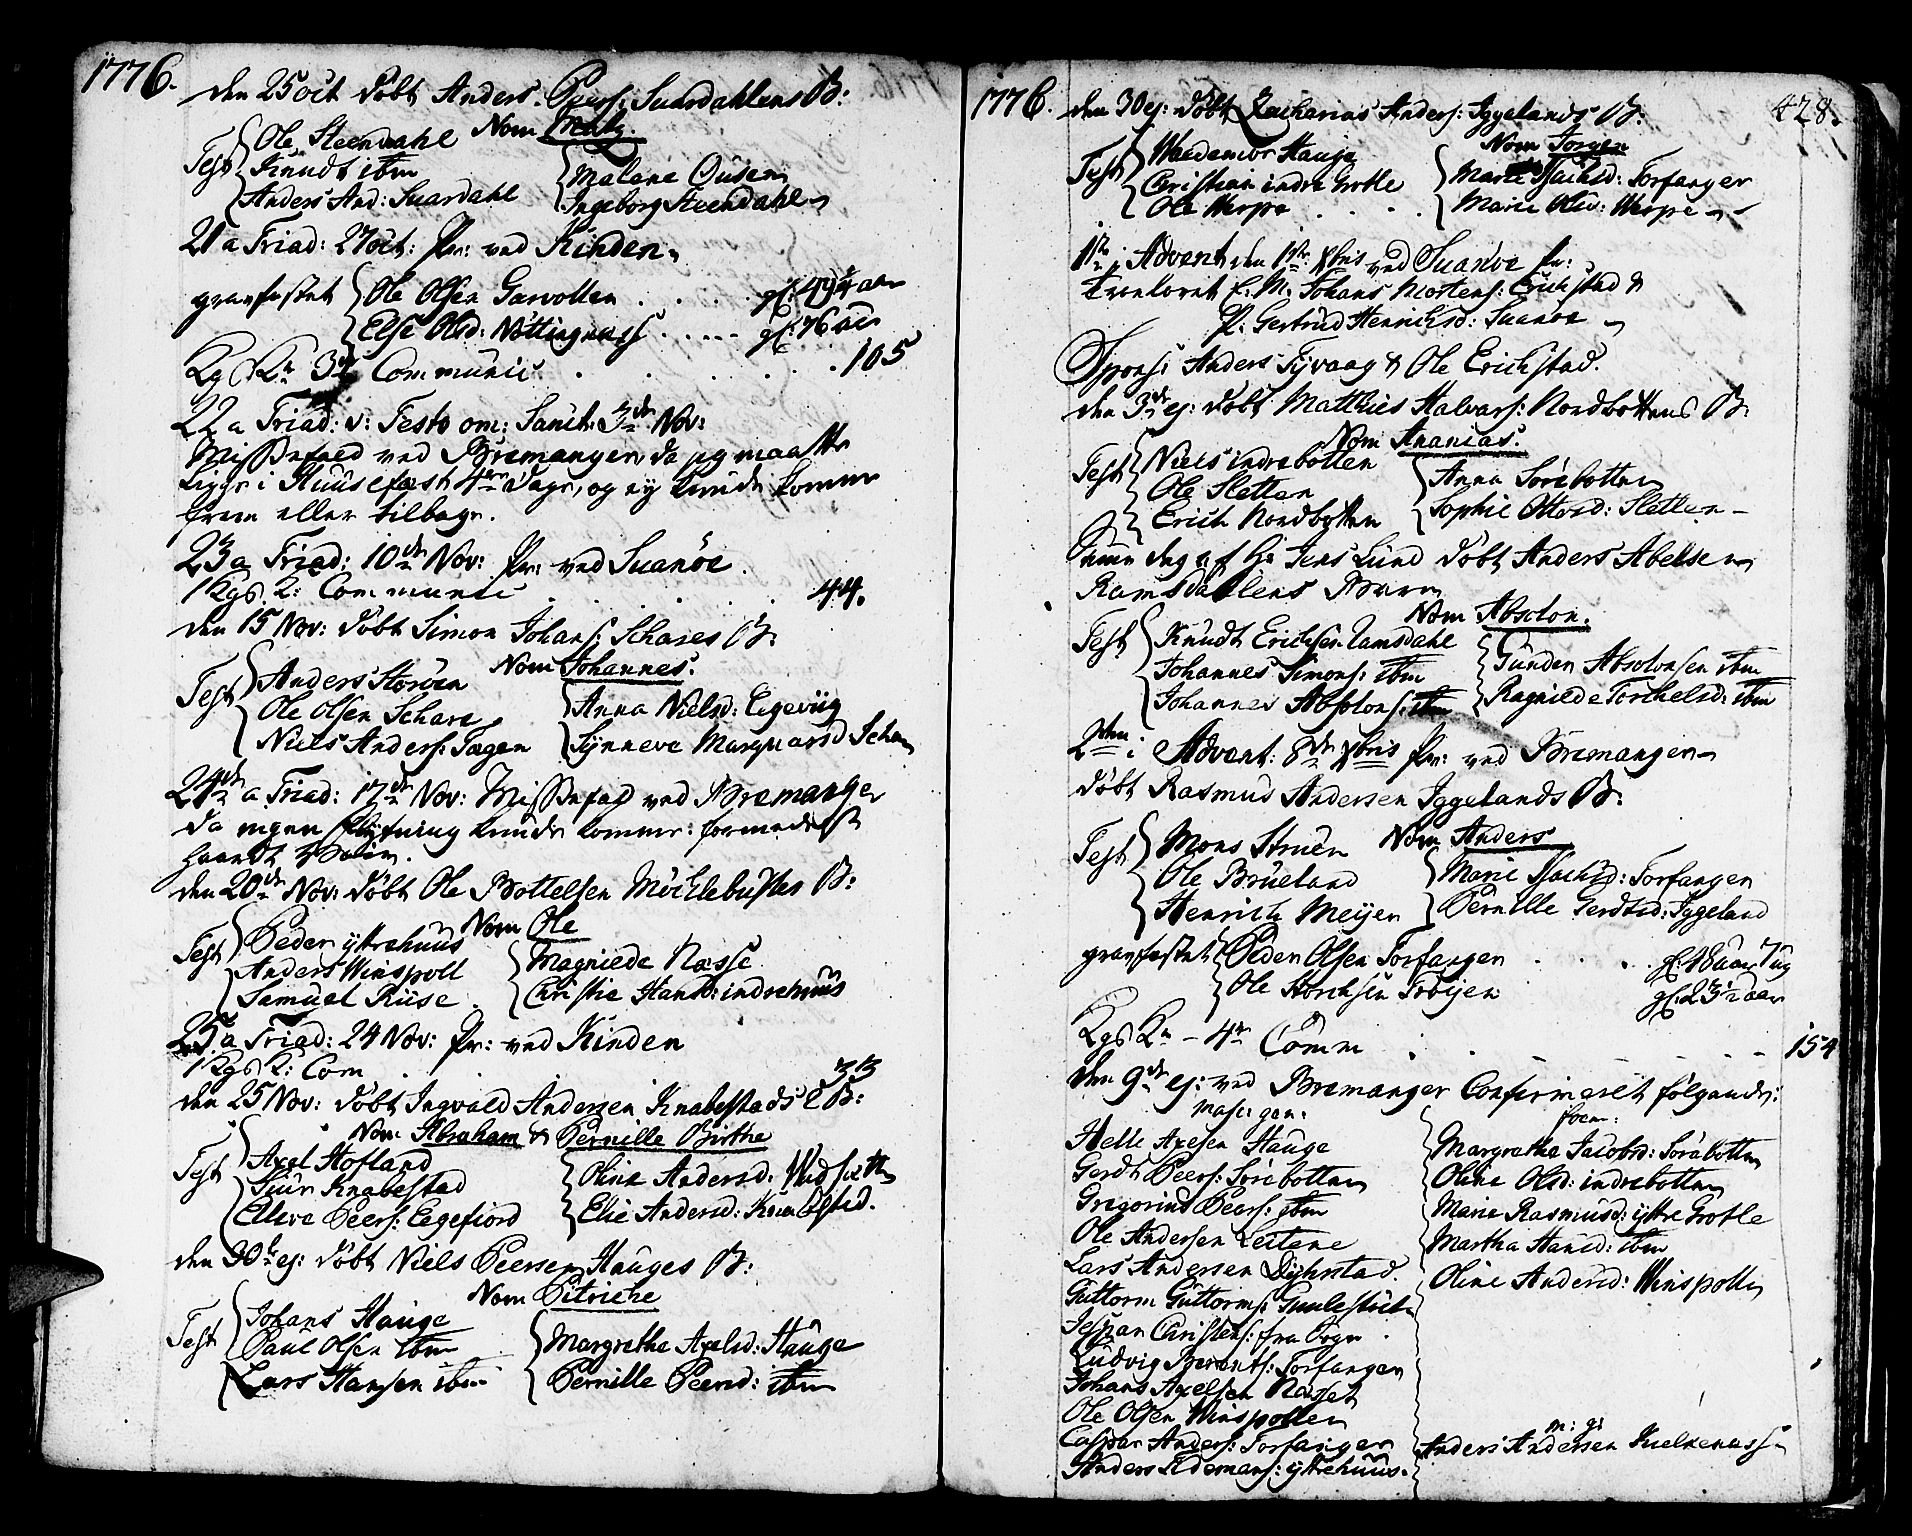 1776.
den 25 oct döbt Anders Peers: Suardahlens B:
Nom Matz.
Test Ole Steendahl
Knudt ibm
Anders And: Suardahl
Malene Ousen
Ingeborg Steendahl
21 a Triad: 27 oct: Pr: ved Kinden
gravfæstet Ole Olsen Garvotten . . . . gl: 49 1/4 aar
Else Olsd: Nöttingness . . . . . gl: 76 aar
Kgs K 3de Communic . . . . . 105
22 a Triad: v: Festo om: Sanct: 3de Nov:
Missefald ved Bremanger, da jeg maatte
ligge i Huusefast 4re dage, og ey kunde komme
frem eller tilbage.
23 a Triad: 10de Nov: Pr: ved Suanöe.
1 Kgs. 2: Communic . . . . . 44.
den 15 Nov: döbt Simon Johans: Schares B:
Nom Johannes.
Test Anders Storöen
Ole Olsen Schare
Niels Anders: Tagen
Anna Nielsd: Egeviig
Synneve Marquarsd Schare
24de a Triad: 17de Nov: Missefald ved Bremanger
da ingen kunde komme formedelst
haardt Veir.
den 20de Nov: döbt Ole Bottelsen Möchlebustes B:
Nom Ole
Test Peder yttrehuus
Anders Winspoll
Samuel Riise
Magniede Næsse
Christie Hansd: indrehuus
25 a Triad: 24 Nov: Pr: ved Kinden
1 Kgs 2: Com . . . 33
den 25 Nov: döbt Ingvald Andersen Knabestads 2 B:
Nom Abraham & Pernille Birthe
Test Axel Hofland
Siur Knabestad
Elleve Peers: Eegefiord
Oline Andersd: Hufsætten
Elie Andersd: Knabestad.
den 30te ej: döbt Niels Peersen Hauges B:
Nom Pitriche
Test Johans Hauge
Paul Olsen ibm
Lars Hansen ibm
Margrethe Axelsd: Hauge
Pernille Peersd: ibm
1776.
428.
den 30 ej: döbt Zacharias Anders: Iggelands B:
Nom Jørgen
Test Waldemor Hauge
Christian indre Grotle
Ole Werpe . . . .
Marie Isachsd: Torfanger
Marie Olsd: Werpe
1te i Advent den 1ste Xbris ved Suanöe Pr:
troeloved E: M: Johans Mortens: Erichstad &
P: Gertrud Henrichsd: Suanöe
Sponsi Anders Tyvaag & Ole Erichstad.
den 3de ej: döbt Matthies Halvars: Nordbottens B:
Nom Ananias.
Test Niels indrebotten
Ole Sletten
Erich Nordbotten
Anna Sörebotten
Sophie Ottosd: Sletten
Samme dag af Hr Jens Lund döbt Anders Abelsen
Ramsdahlens Barn
Nom Absolon.
Test Knudt Erichsen Ramsdahl
Johannes Simons: ibm
Johannes Absolons: ibm
Gunder Absolonsen ibm
Ragnilde Torchelsd: ibm
2den i Advent: 8de Xbris Pr: ved Bremanger
döbt Rasmus Andersen Iggelands B:
Nom Anders
Test Mons Struen
Ole Brüeland
Henrich Meijer
Marie Isachsd: Torfanger
Pernille Gerdtsd: Iggeland
gravfæstet Peder Olsen Torfanger . . . . gl: 18 aar 7 ug
Ole Storchsen Frøijen gl: 23 1/2 aar
Kgs K - 4de Comm . . . . . 154
den 9de ej: ved Bremanger Confirmeret fölgende:
masc: gen:
Helle Axelsen Hauge
Gerdt Peers: Sörebotten
Gregorius Peers: ibm
Ole Andersen Leitene
Lars Andersen Dyhrstad.
Guttorm Guttorms: Gulestuen
Jespar Christens: fra Sogn.
Ludvig Berents: Torfanger
Johans Axelsen Nøsset
Ole Olsen Winspollen
Caspar Anders: Torfanger
Anders Eidemans: yttrehuus.
foem:
Margrethe Jacobsd: Sörebotten
Oline Olsd: indrebotten
Marie Rasmusd: yttre Grotle
Martha Hansd: ibm
Oline Andersd: Winspollen
m: g:
Anders Andersen Kuelnenass